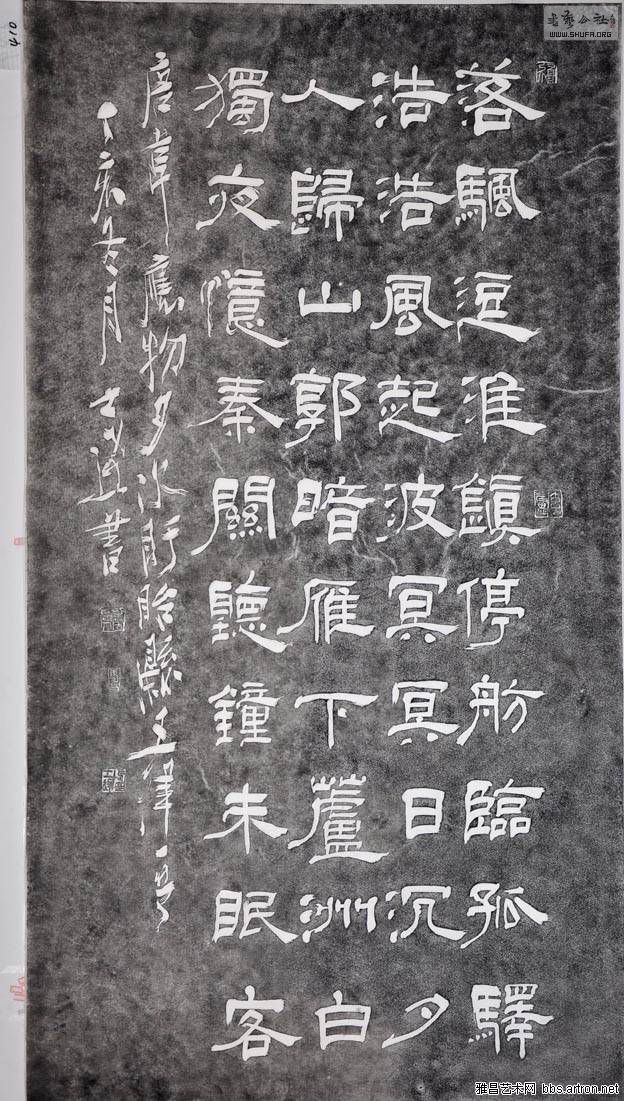 落驅逗淮鎮停舫臨孤驛
浩浩風起波冥冥日沉夕
人歸山郭暗雁下蘆洲白
獨夜憶秦關聽鐘未眠客
唐韋應物夕次盱眙縣五律一首
丁亥冬月 書
410
WWW.SHUFA.ORG
雅昌艺术网 bbs.artron.net